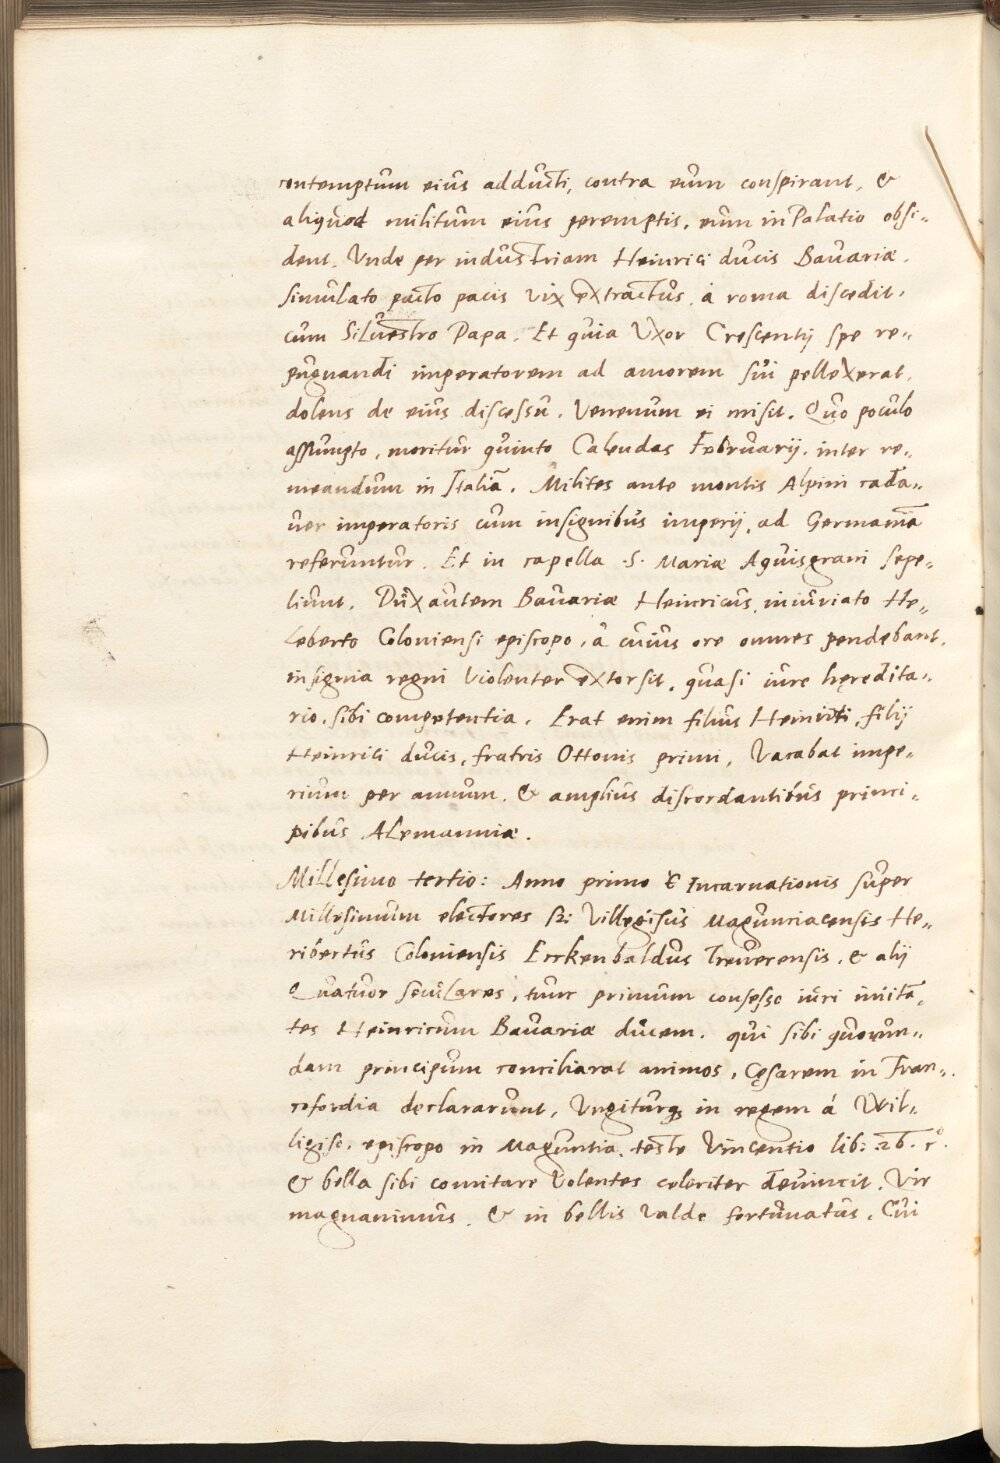 contemptum eius adducti, contra eum conspirant, &
aliquot militum eius peremptis, eum in Palatio obsi„
dent. Unde per industriam Heinrici ducis Bavariæ,
simulato pacto pacis vix extractus, à roma discedit,
cum Silvestro Papa. Et quia Uxor Crescentij spe re„
gnandi imperatorem ad amorem sui pellexerat,
dolens de eius discessu, Venenum ei misit. Quo poculo
assumpto, moritur quinto Calendas Februarij, inter re„
meandum in Italiā. Milites ante montis Alpini cada„
ver imperatoris cum insignibus imperij, ad Germaniā
referuntur. Et in capella S. Mariæ Aquisgrani sepe„
liunt. Dux autem Bavariæ Heinricus, iniuriato He„
leberto Coloniensi episcopo, à cuius ore omnes pendebant,
insignia regni violenter extorsit, quasi iure hęredita„
rio, sibi competentia. Erat enim filius Heinrici, filij
Heinrici ducis, fratris Ottonis primi, Vacabat impe„
rium per annum, & amplius discordantibus princi„
pibus Alemanniæ.
Millesimo tertio: Anno primo Incarnationis super
Millesimum electores Villegisus Maguntiacensis He„
ribertus Coloniensis Erckenbaldus Treverensis, & alij
Quatuor seculares, tunc primum consesso iuri innitā„
tes Heinricum Bavariæ ducem, qui sibi quorun„
dam principum conciliarat animos, Cęsarem in Fran„
cofordia declararunt, Ungiturq̨ in regem á Wil„
ligiso, episcopo in Maguntia, teste Vincentio lib: 26. r°.
& bella sibi comitare volentes celeriter devincit. Vir
magnanimus, & in bellis valde fortunatus, Cui